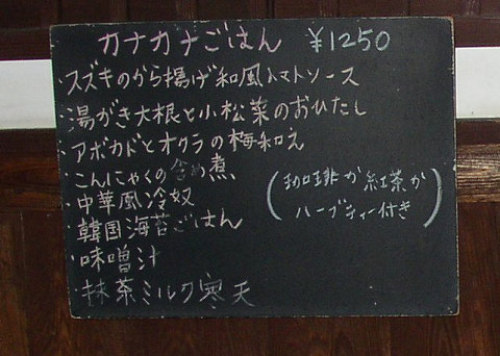 カナカナごはん ¥1250
・スズキのから揚げ和風トマトソース
・湯がき大根と小松菜のおひたし
・アボカドとオクラの梅和え
・こんにゃくの含め煮
・中華風冷奴
・韓国海苔ごはん
・味噌汁
・抹茶ミルク寒天
(珈琲か紅茶か
ハーブティー付き)